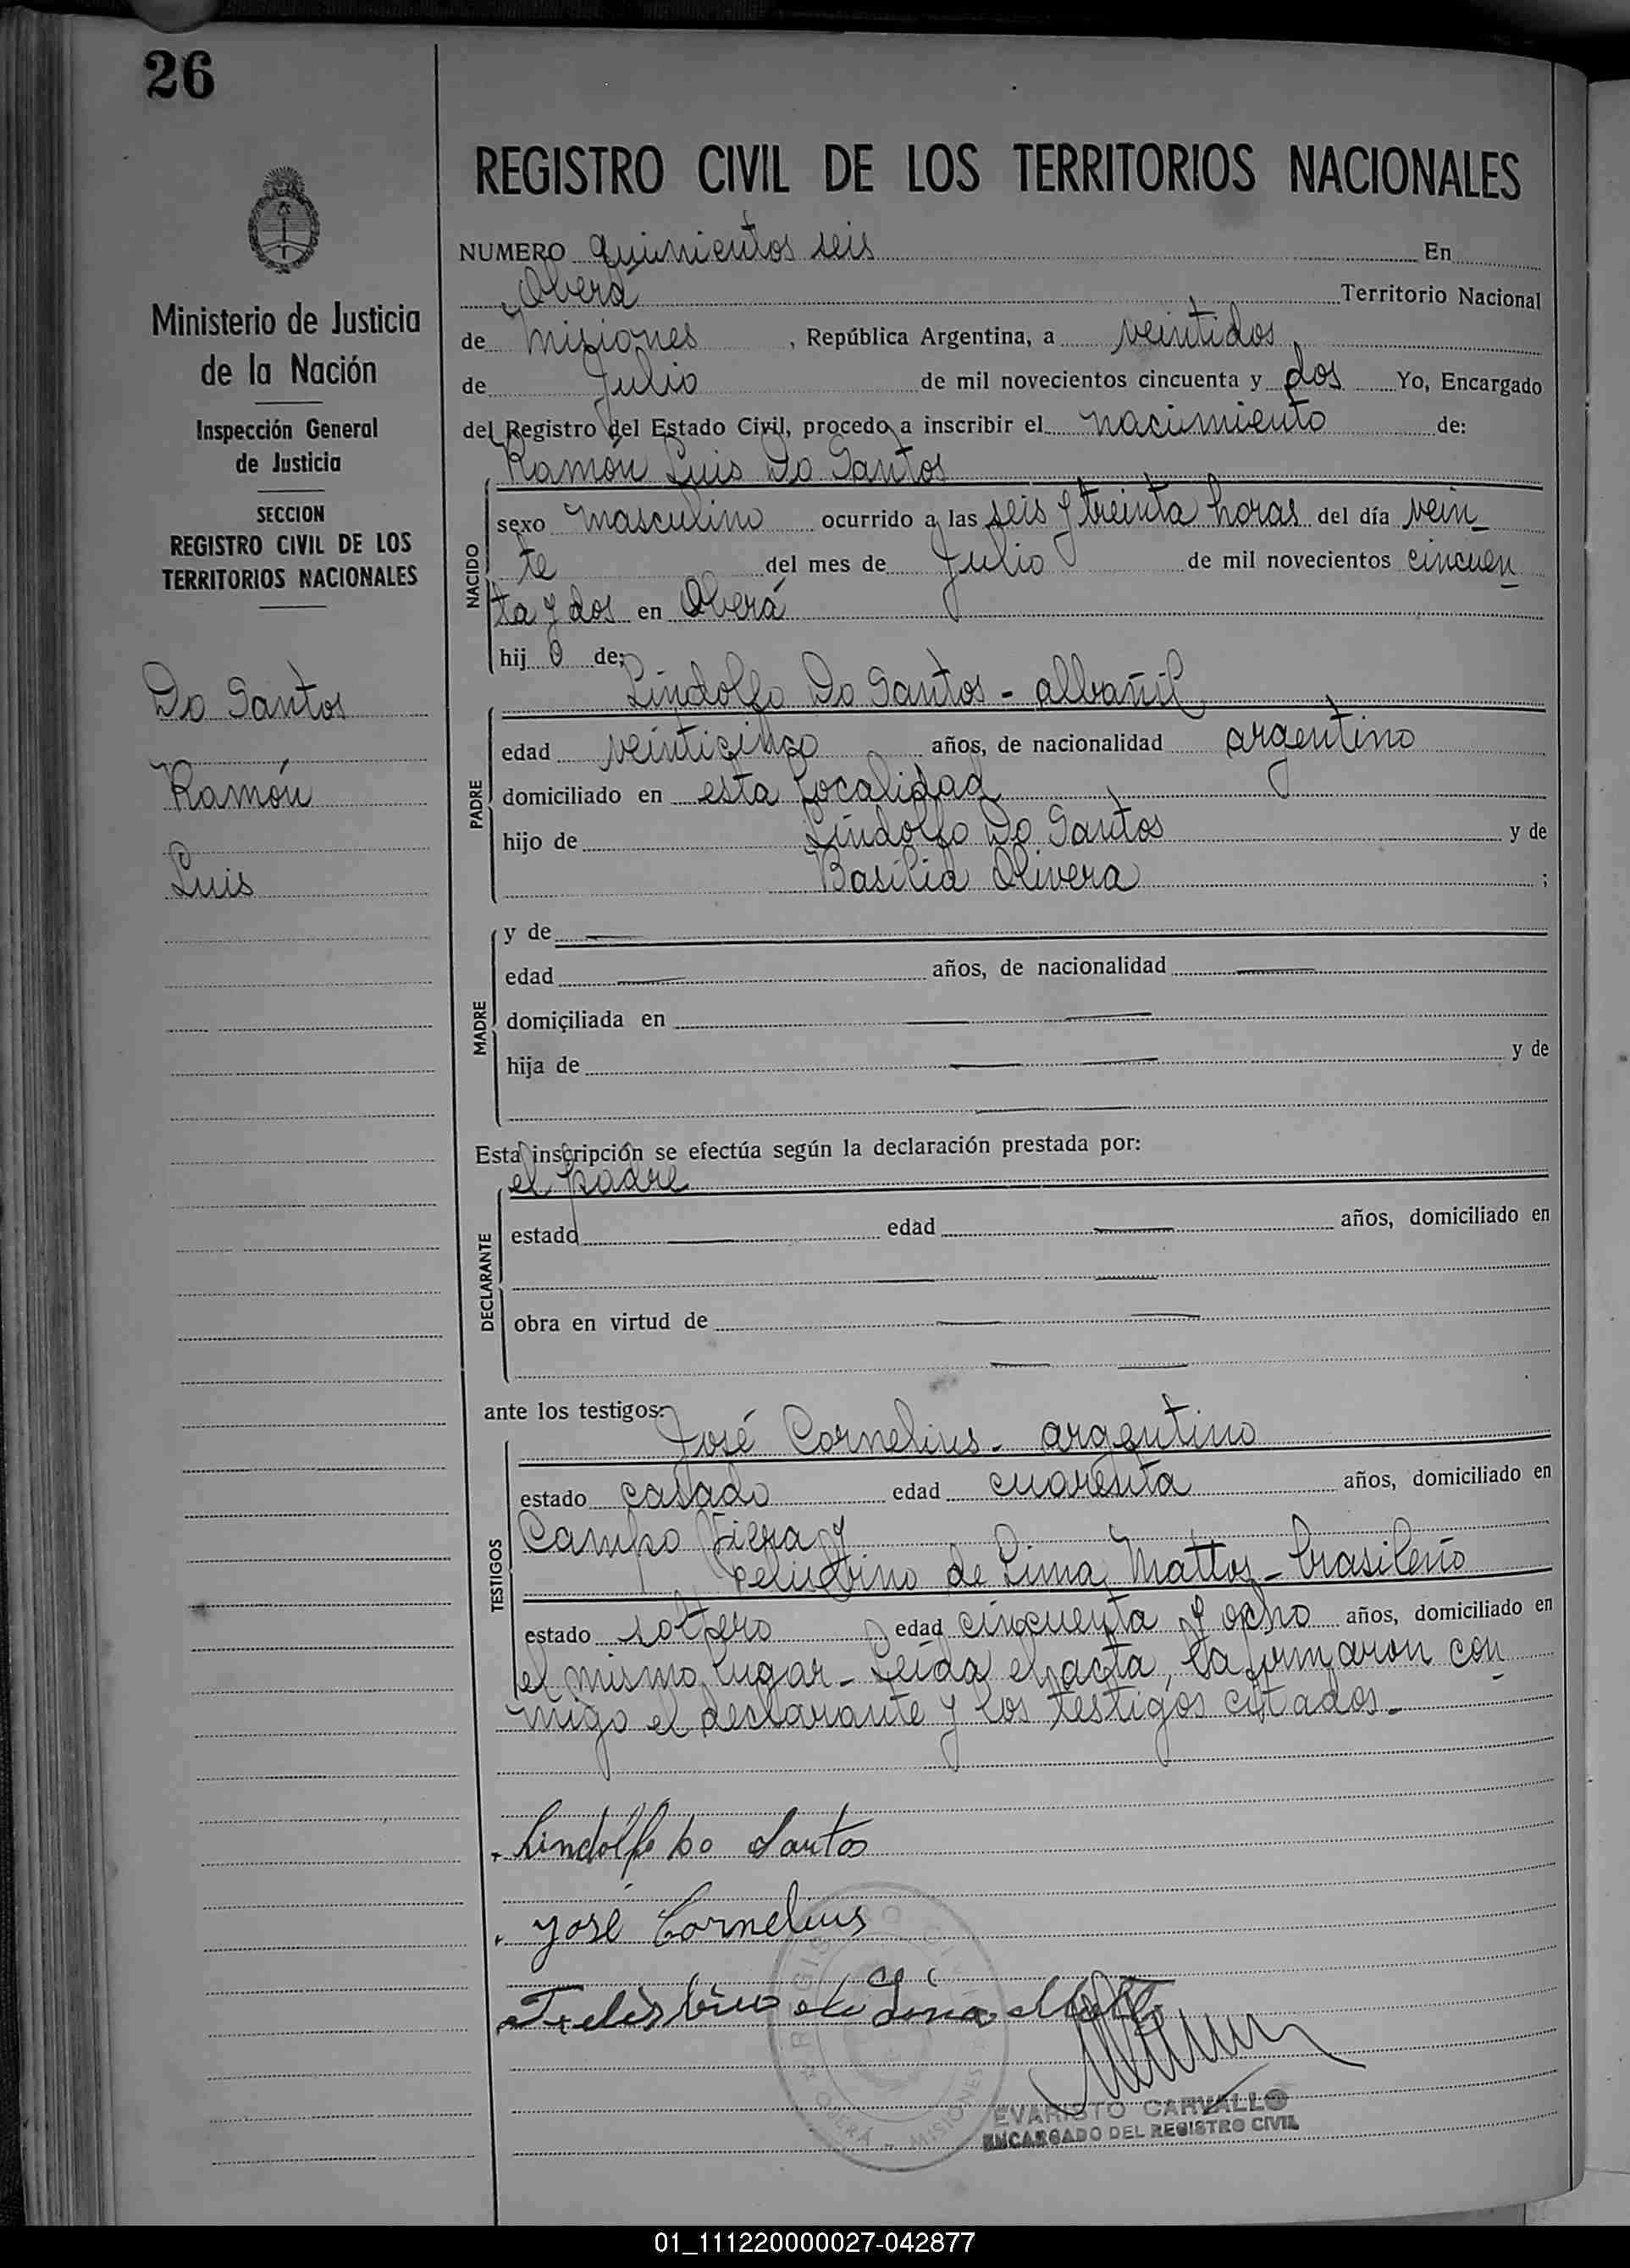 26
REGISTRO CIVIL DE LOS TERRITORIOS NACIONALES
Ministerio de Justicia
de la Nación
Inspección General
de Justicia
SECCION
REGISTRO CIVIL DE LOS
TERRITORIOS NACIONALES
Do Santos
Ramón
Luis
NUMERO quinientos seis En
Oberá Territorio Nacional
de Misiones, República Argentina, a veintidos
de Julio de mil novecientos cincuenta y dos Yo, Encargado
del Registro del Estado Civil, procedo a inscribir el nacimiento de:
Ramón Luis Do Santos
NACIDO
sexo masculino ocurrido a las seis y treinta horas del día vein_
te del mes de Julio de mil novecientos cincuen
ta y dos en Oberá
hijo de;
Lindolfo Do Santos - albañil
PADRE
edad veinticinco años, de nacionalidad argentino
domiciliado en esta localidad
hijo de Lindolfo Do Santos y de
Basilia Olivera ;
MADRE
y de —
edad — años, de nacionalidad —
domiciliada en — —
hija de — — y de
—
Esta inscripción se efectúa según la declaración prestada por:
el padre
DECLARANTE
estado — edad — años, domiciliado en
— —
obra en virtud de — —
— —
ante los testigos:
José Cornelius - argentino
TESTIGOS
estado casado edad cuarenta años, domiciliado en
Campo Viera y
de Lima Mattos - brasileño
estado soltero edad cincuenta y ocho años, domiciliado en
el mismo lugar - Leída el acta, la firmaron con
migo el declarante y los testigos citados.-
Lindolfo Do Santos
José Cornelius
de Lima
REGISTRO CIVIL
OBERÁ - MISIONES
EVARISTO CARVALLO
ENCARGADO DEL REGISTRO CIVIL
01_111220000027-042877